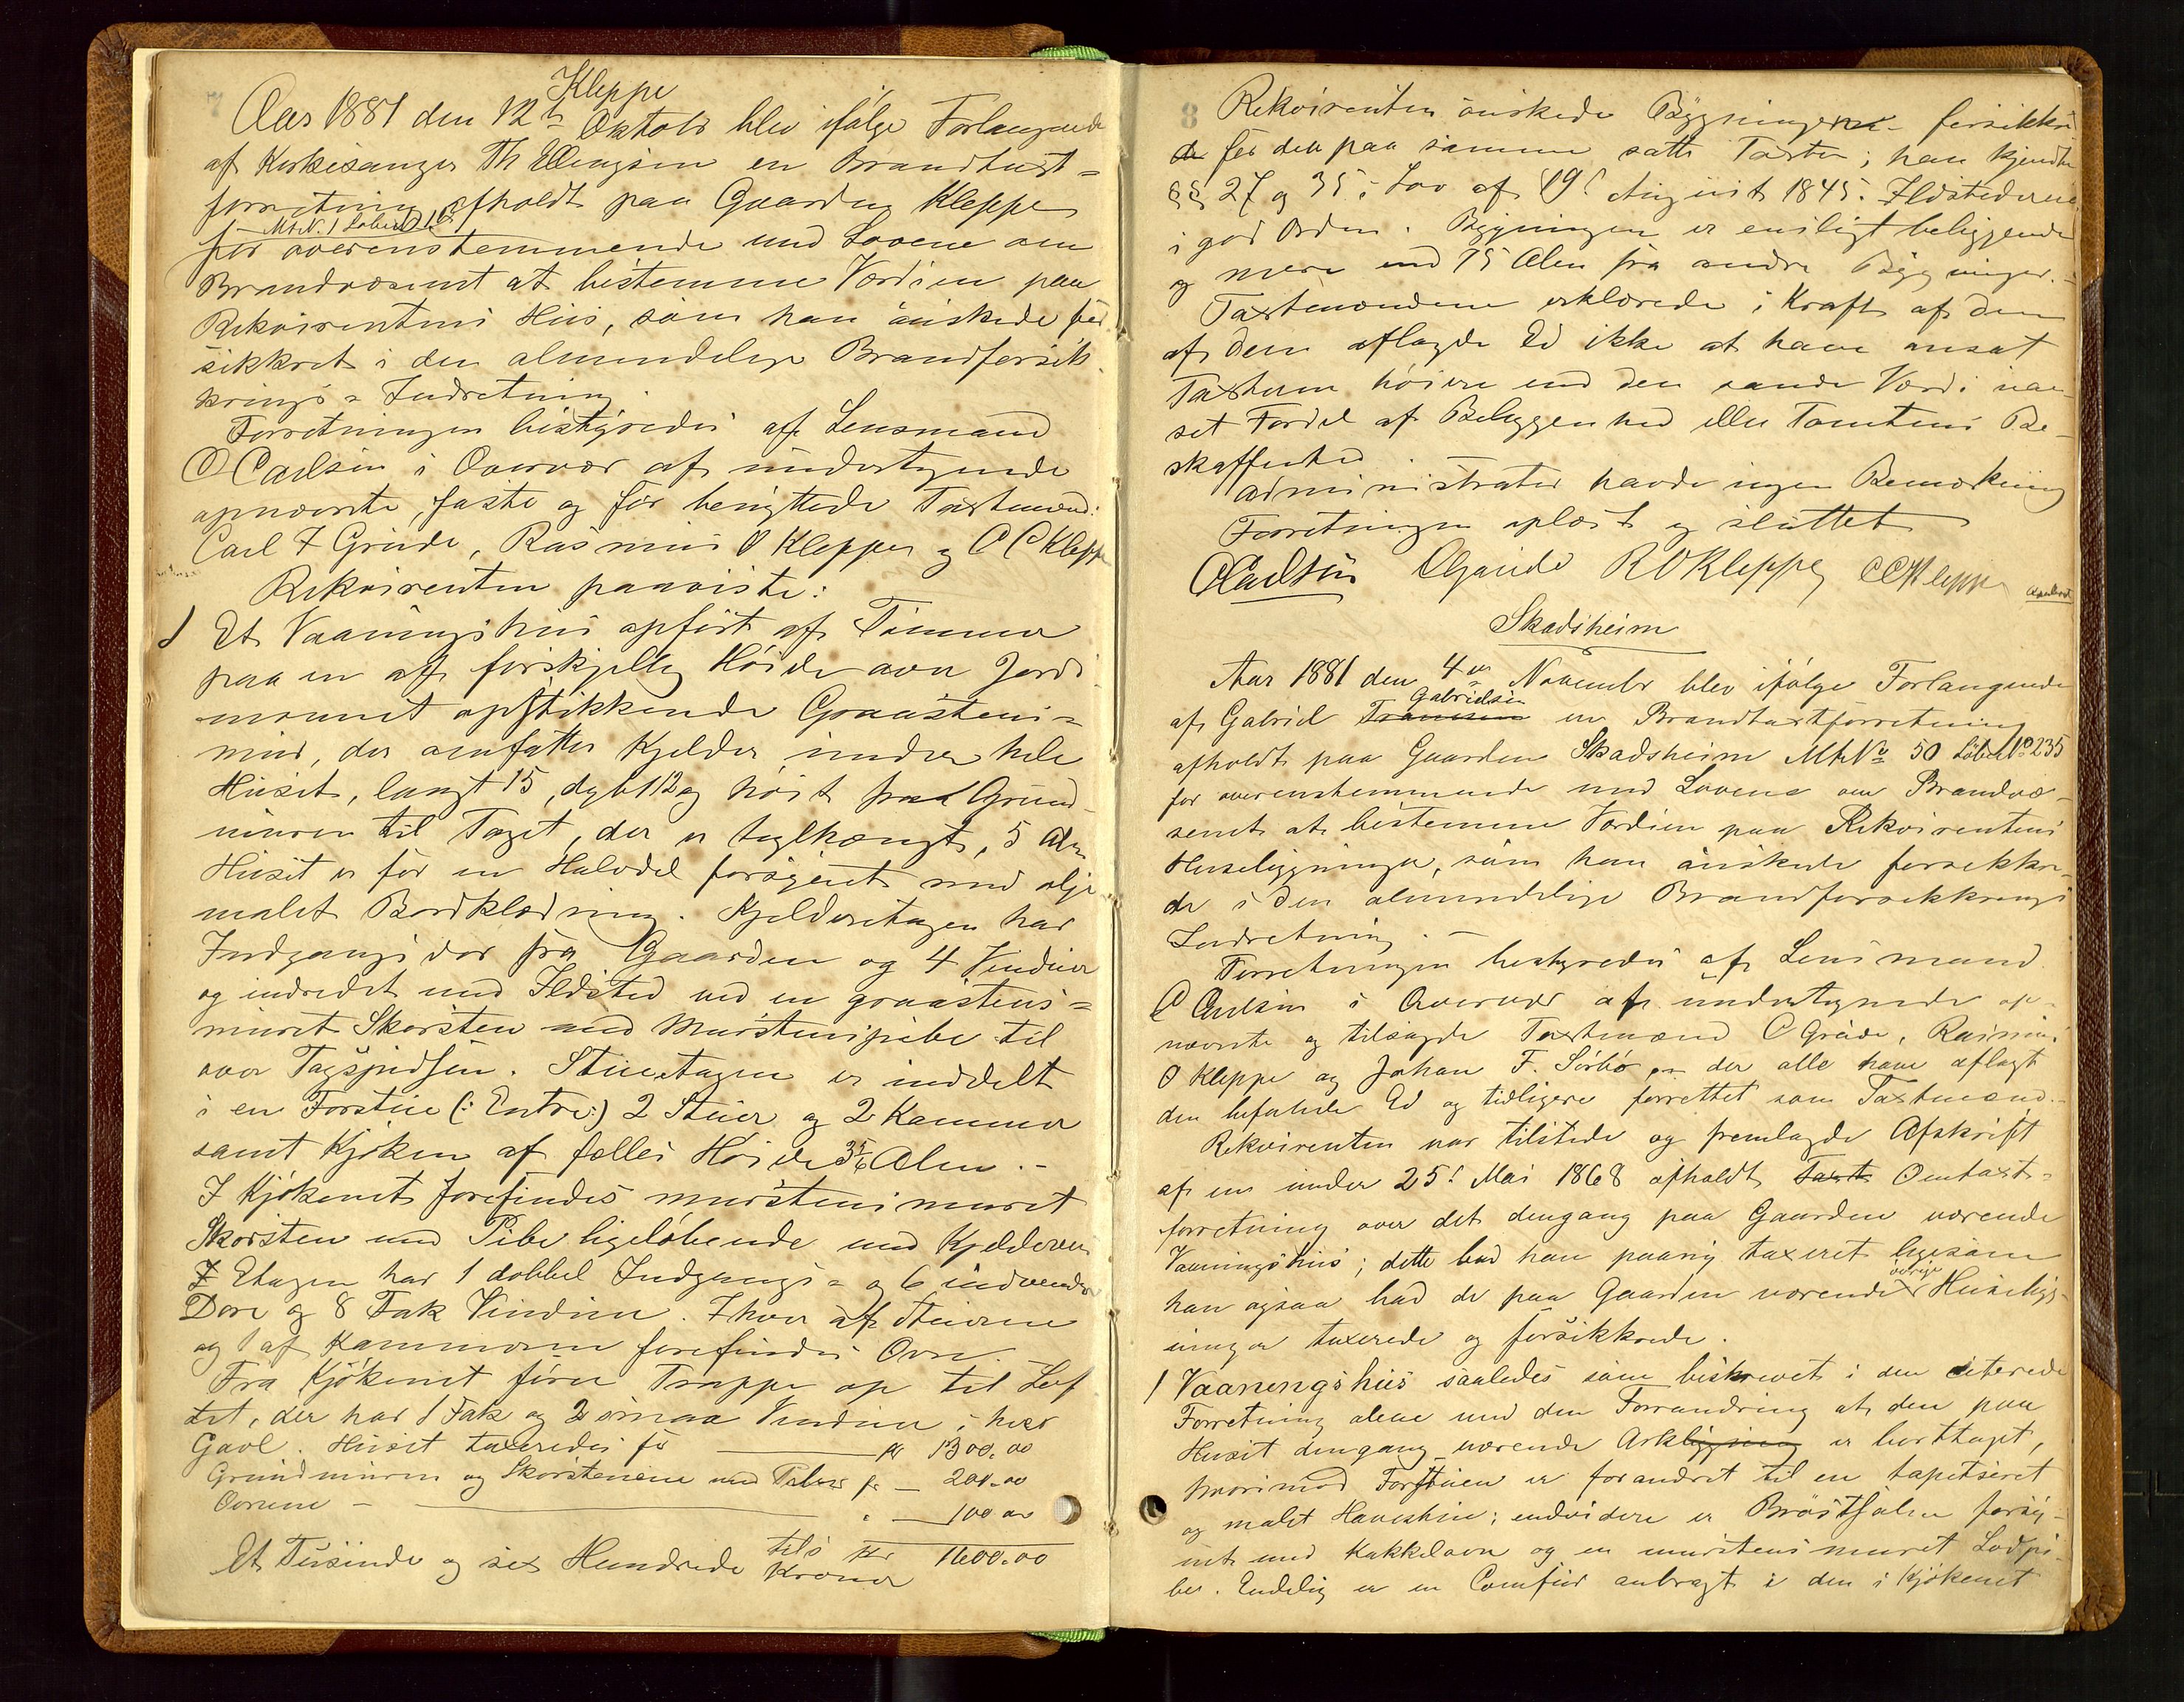 7
Kleppe
Aar 1881 den 12te Oktobr blev ifølge Forlangende
af Kirkesanger Th Ellingsen en Brandtaxt-
forretning afholdt paa Gaarden Kleppe
MtrN. 1 Løbe
for overensstemmende med Lovene om
Brandvæsenet at bestemme Værdien paa
Rekvirentens Huus, som han ønskede for
sikkret i den almindelige Brandforsik
krings- Indretning
Forretningen bestyredes af Lensmand
O Carlsen i Overvær af undertegnede
opnævnte, faste og før benyttede Taxtmænd:
Carl F Grude, Rasmus O Kleppe og C C Kleppe
Rekvirenten paaviste:
1 Et Vaaningshuus opført af Tømmer
paa en af forskjellig Høide over Jords
monnet opstikkende Graastens-
mur, der omfatter Kjelder under hele
Huset, langt 15, dybt 12 og høit fra Grund-
muren til Taget, der er teglhængt, 5 Alen
Huset er for en Halvdel forsynet med olje
malet Bordklædning. Kjelderetagen har
Indgangsdør fra Gaarden og 4 Vinduer
og indredet med Ildsted ved en graastens-
muret Skorsten med Murstenspibe til
over Tagspidsen. Stueetagen er inddelt
i en Forstue (: Entre :) 2 Stuer og 2 Kammer
samt Kjøken af fælles Høide 3 5/6 Alen.-
I Kjøkenet forefindes murstensmuret
Skorsten med Pibe ligeløbende med Kjelderen
I Etagen har 1 dobbel Indgangs- og 6 indvendige
Døre og 8 Fak Vinduer. I hver af Stuerne
og 1 af Kammerne forefindes Ovn.
Fra Kjøkenet fører Trappe op til Lof
tet, der har 1 Fak og 2 smaa Vinduer i hver
Gavl. Huset taxeredes for kr 1300.00
Grundmuren og Skorstenene med Piber for - 200.00
Ovnene - " - 100 00
tils kr 1600.00
Et Tusinde og sex Hundrede Kroner
8
Rekvirenten ønskede Bygningerne forsikkre
de for den paa samme satte Taxter; han kjendte
§§ 27 og 35 i Lov af 19. August 1845. Ildstederne
i god Orden. Bygningen er ensligt beliggende
og mere end 75 Alen fra andre Bygninger.-
Taxtmændene erklærede i Kraft af den
af dem aflagde Ed ikke at have ansat
Taxterne høiere end den sande Værdi uan-
set Fordel af Beliggenhed eller Tomtens Be-
skaffenhed.
Administrator havde ingen Bemærkning
Forretningen oplæst og sluttet
OCarlsen CGrude ROKleppe CCKleppe
Skadsheim
Aar 1881 den 4de November blev ifølge Forlangende
Gabrielsen
af Gabriel en Brandtaxtforretning
afholdt paa Gaarden Skadsheim MtrNo 50 LøbeNo 235
for overensstemmende med Lovene om Brandvæ-
senet at bestemme Værdien paa Rekvirentens
Husebygninger, som han ønskede forsikkre-
de i den almindelige Brandforsikkrings
Indretning. -
Forretningen bestyredes af Lensmand
O Carlsen i Overvær af undertegnede op-
nævnte og tilsagde Taxtmænd C Grude, Rasmus
O Kleppe og Johan F. Sørbø, der alle have aflagt
den befalede Ed og tidligere forrettet som Taxtmænd.-
Rekvirenten var tilstede og fremlagde Afskrift
af en under 25. Mai 1868 afholdt Taxt Omtaxt-
forretning over det dengang paa Gaarden værende
Vaaningshuus; dette bad han paany taxeret ligesom
øvrige
han ogsaa bad de paa Gaarden værende Husebyg-
ninger taxerede og forsikkrede.
1 Vaaningshuus saaledes som beskrevet i den citerede
Forretning alene med den Forandring at den paa
Huset dengang værende Arkbygning er borttaget,
hvorimod Forstuen er forandret til en tapetseret
og malet Havestue; endvidere er Brøstsalen forsy-
net med Kakkelovn og en murstensmuret Lodpi-
be. Endelig er en Comfur anbragt i den i Kjøkenet